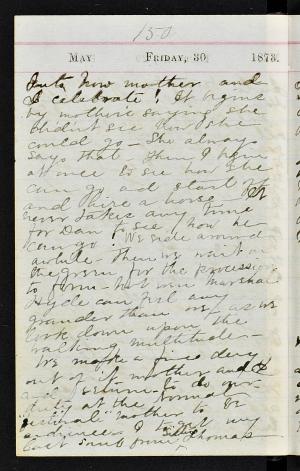 150
May Friday, 30 1873.
how mother and
I celebrate! It begins
by mother saying she
didnt see how she
could go - She always
says that. Then I have
at once to see how she
can go and start
and hire a horse - It
never takes any time
for Dan to see how he
can go! We ride around
awhile - then we wait on
the green for the procession
to form - not even Marshal
Hyde can feel any
grander than we as we
look down upon the
waiting multitude -
We make a fine day
out of it mother and I
and return to do our
at the Normal
mother to
audience I to
Thomas